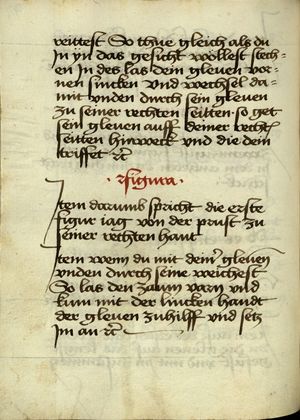 reittest So thue gleich als du
In yn das gesicht wöllest stech-
en In des las dem gleuen vor-
nen sincken vnd wechsel da-
mit vnden durch sein gleuen
zu seiner rechten seitten so get
sein gleuen auff deiner recht
seitten hinweck vnd die dein
triffet rc
· figura ·
Item darumb spricht die erste
figur iag von der prust zu
seiner rechten hant
Item wenn du mit dem gleuen
vnden durch seine weichest
So las den zaum varn vnd
kum mit der lincken handt
der gleuen zuhilff vnd setz
Im an rc